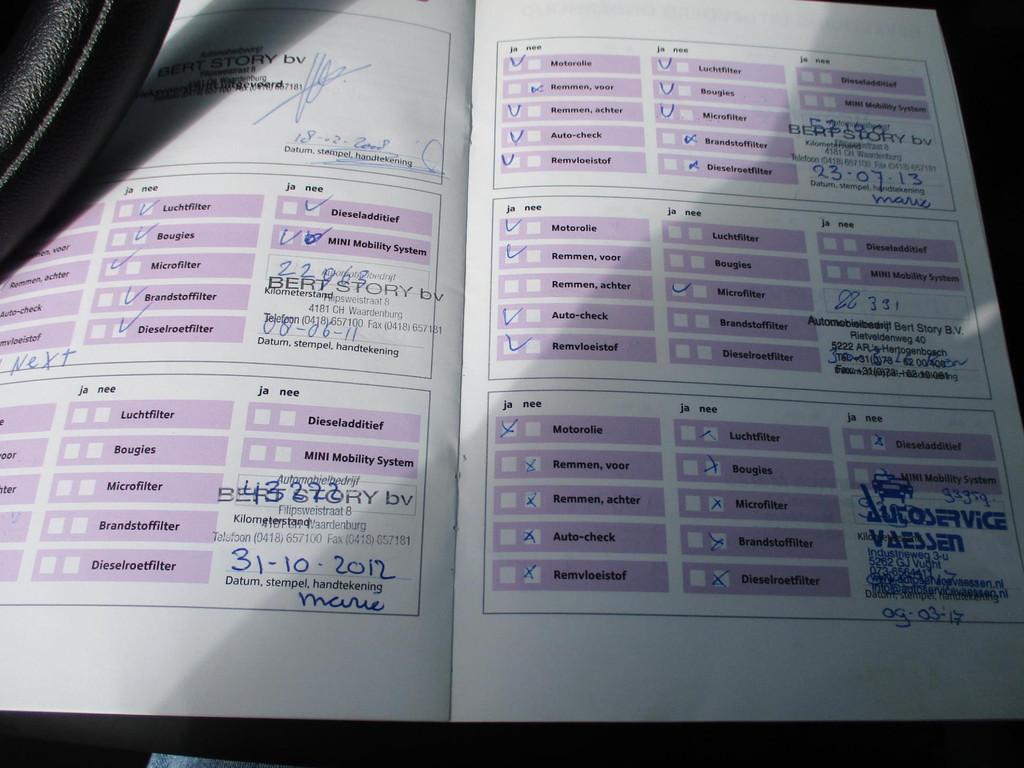 Automobielbedrijf
BERT STORY bv
Filipsweistraat 8
4181 CH Waardenburg
18-02-2008
Datum, stempel, handtekening
ja nee
ja nee
Luchtfilter
Dieseladditief
Bougies
MINI Mobility System
men, voor
Microfilter
Remmen, achter
Brandstoffilter
Auto-check
Dieselroetfilter
mvloeistof
Next
Automobielbedrijf
BERT STORY bv
Kilometerstand
Filipsweistraat 8
4181 CH Waardenburg
Telefoon (0418) 657100 Fax (0418) 657181
08-06-11
Datum, stempel, handtekening
ja nee
ja nee
Luchtfilter
Dieseladditief
Bougies
MINI Mobility System
Microfilter
Brandstoffilter
Dieselroetfilter
Automobielbedrijf
43272
BERT STORY bv
Filipsweistraat 8
Kilometerstand
4181 CH Waardenburg
Telefoon (0418) 657100 Fax (0418) 657181
31-10-2012
Datum, stempel, handtekening
marie
ja nee
ja nee
ja nee
Motorolie
Luchtfilter
Dieseladditief
Remmen, voor
Bougies
MINI Mobility System
Remmen, achter
Microfilter
Auto-check
Brandstoffilter
Remvloeistof
Dieselroetfilter
BERT STORY bv
Kilometerstand
Filipsweistraat 8
4181 CH Waardenburg
Telefoon (0418) 657100 Fax (0418) 657181
23-07-13
Datum, stempel, handtekening
marie
ja nee
ja nee
ja nee
Motorolie
Luchtfilter
Dieseladditief
Remmen, voor
Bougies
MINI Mobility System
Remmen, achter
Microfilter
Auto-check
Brandstoffilter
Remvloeistof
Dieselroetfilter
331
Automobielbedrijf Bert Story B.V.
Rietveldenweg 40
5222 AR 's-Hertogenbosch
ja nee
ja nee
ja nee
Motorolie
Luchtfilter
Dieseladditief
Remmen, voor
Bougies
MINI Mobility System
Remmen, achter
Microfilter
Auto-check
Brandstoffilter
Remvloeistof
Dieselroetfilter
AUTOSERVICE
VAESSEN
Industrieweg 3-u
5262 GJ Vught
www.autoservicevaessen.nl
info@autoservicevaessen.nl
Datum, stempel, handtekening
09-03-17